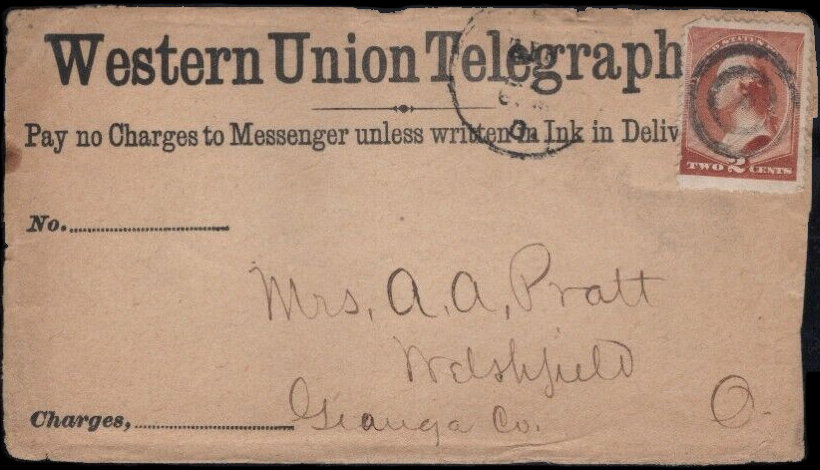 Western Union Telegraph
Pay no Charges to Messenger unless written in Ink in Deliv
UNITED STATES
TWO 2 CENTS
No.
Mrs. A. A. Pratt
Welshfield
Geauga Co. O.
Charges,